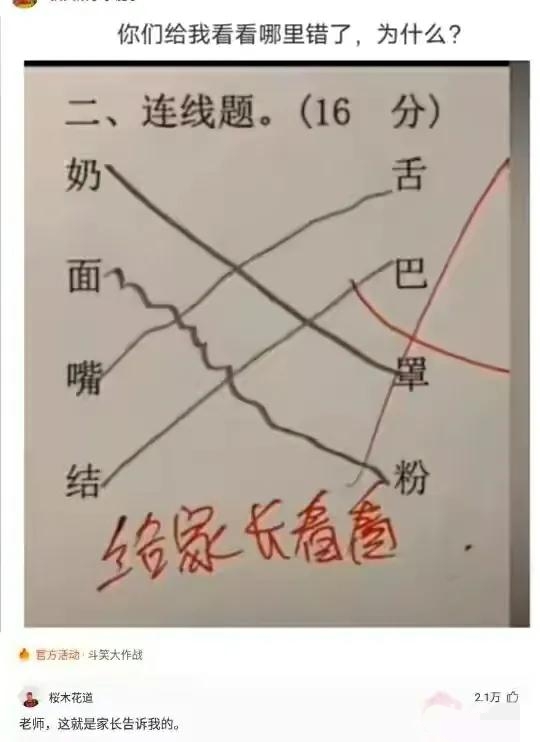 你们给我看看哪里错了，为什么？
二、连线题。(16 分)
奶 舌
面 巴
嘴 罩
结 粉
给家长看看
官方活动·斗笑大作战
桜木花道 2.1万
老师，这就是家长告诉我的。